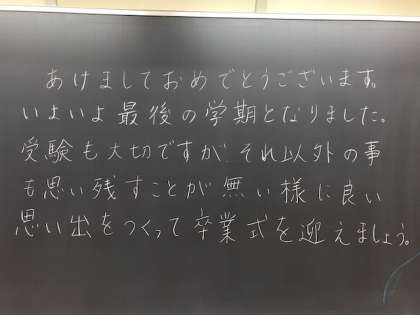 あけましておめでとうございます。
いよいよ最後の学期となりました。
受験も大切ですが、それ以外の事
も思い残すことが無い様に良い
思い出をつくって卒業式を迎えましょう。